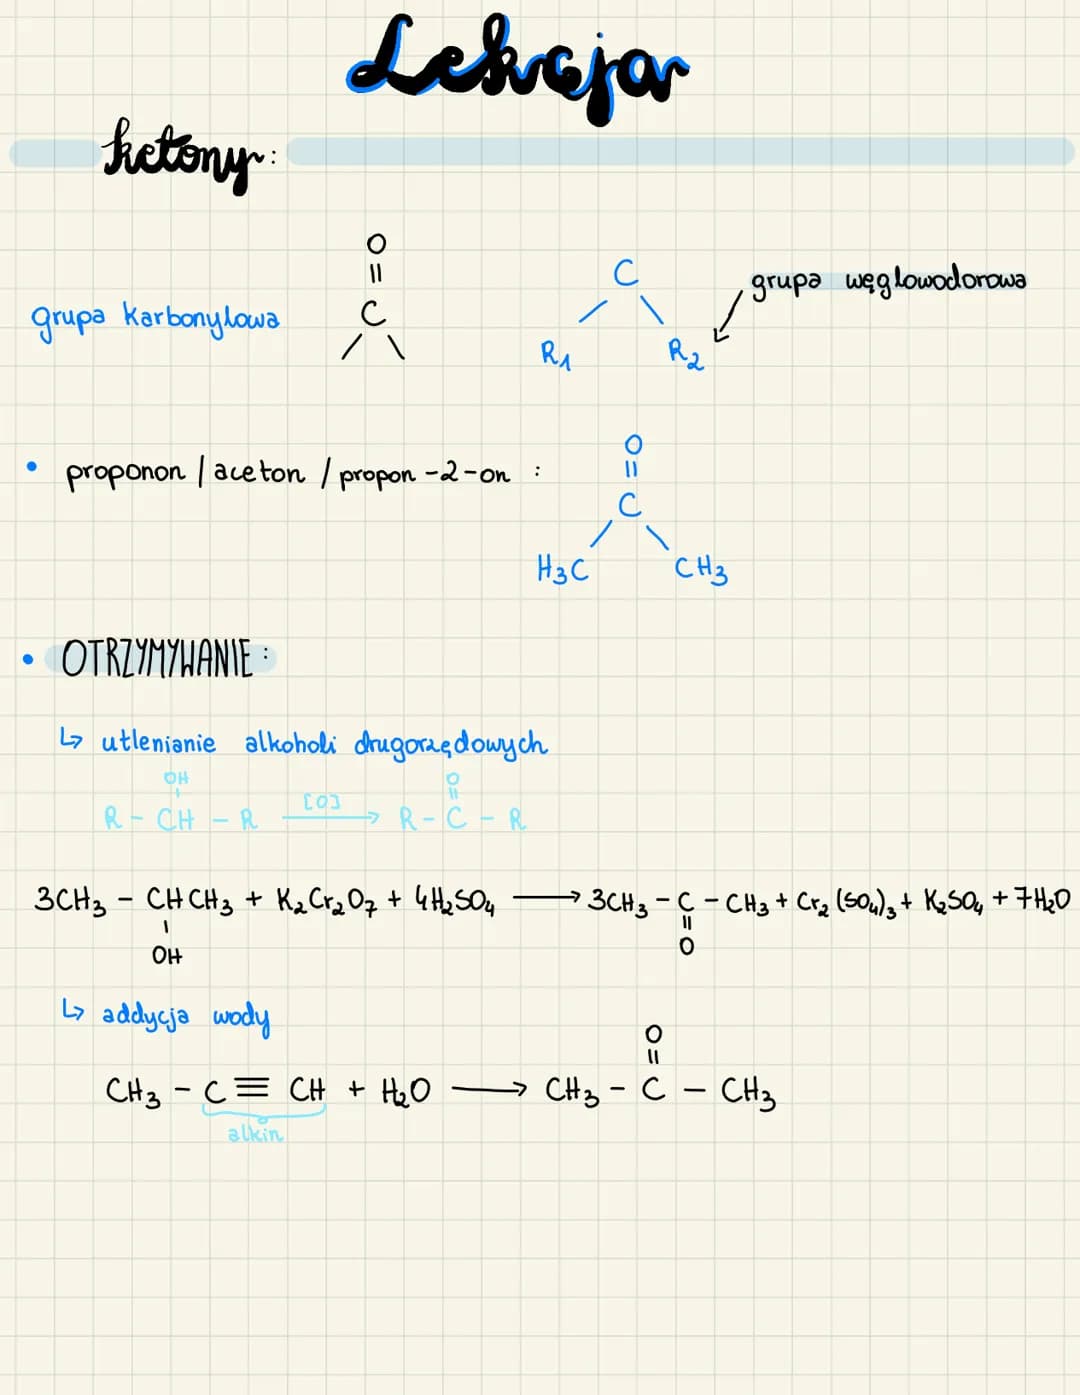 Lekcja
ketony:
grupa karbonylowa
O
||
C
/ \
C
/ \
R1 R2
grupa węglowodorowa
• proponon / aceton / propon-2-on :
O
||
C
/ \
H3C CH3
• OTRZYMYWANIE:
↳ utlenianie alkoholi drugorzędowych
OH O
| ||
R - CH - R [O] → R - C - R
3CH3 - CHCH3 + K2Cr2O7 + 4H2SO4 → 3CH3 - C - CH3 + Cr2(SO4)3 + K2SO4 + 7H2O
| ||
OH O
↳ addycja wody
O
||
CH3 - C ≡ CH + H2O → CH3 - C - CH3
alkin